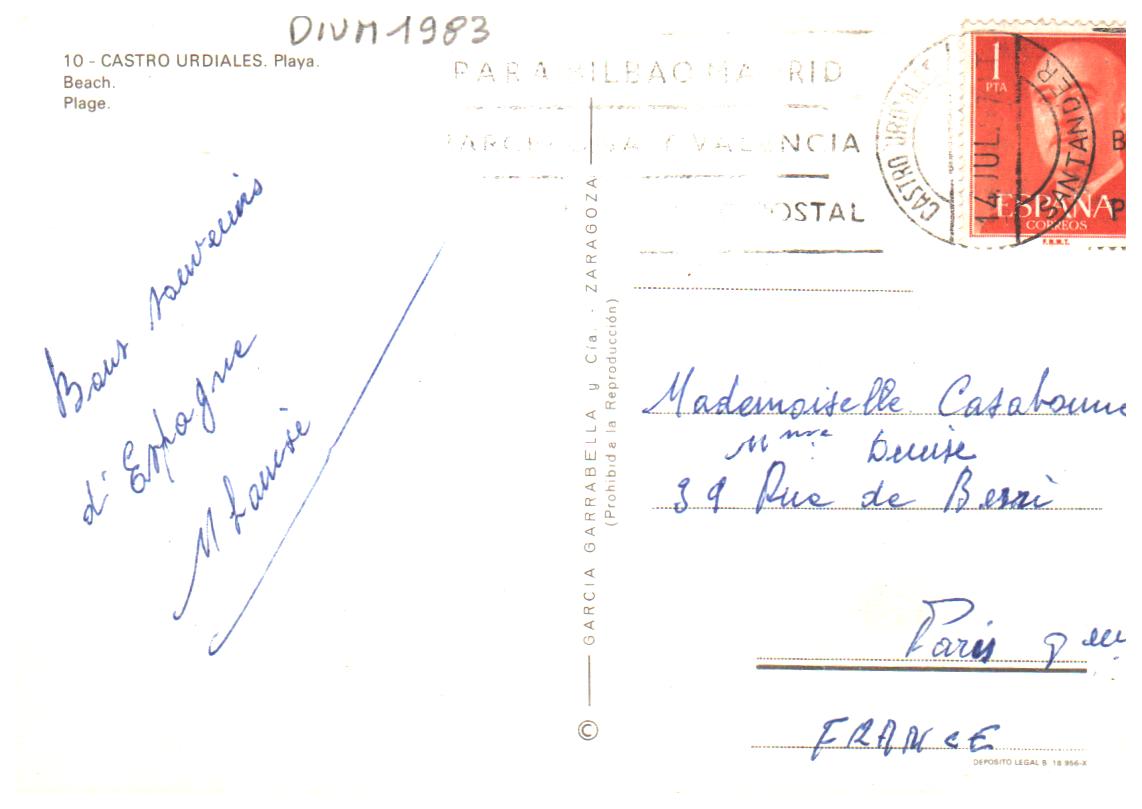 DIVM 1983
10 - CASTRO URDIALES. Playa.
Beach.
Plage.
PARA BILBAO MADRID
Y VALENCIA
POSTAL
CASTRO URDIALES
14 JUL.
SANTANDER
1
PTA
ESPAÑA
CORREOS
F.N.M.T.
B
P
Bons souvenirs
d'Espagne
M Louise
GARCIA GARRABELLA y Cía. - ZARAGOZA
(Prohibida la Reproducción)
©
Mademoiselle Casabonne
Mme Denise
39 Rue de Berri
Paris
FRANCE
DEPOSITO LEGAL B 18 956-X